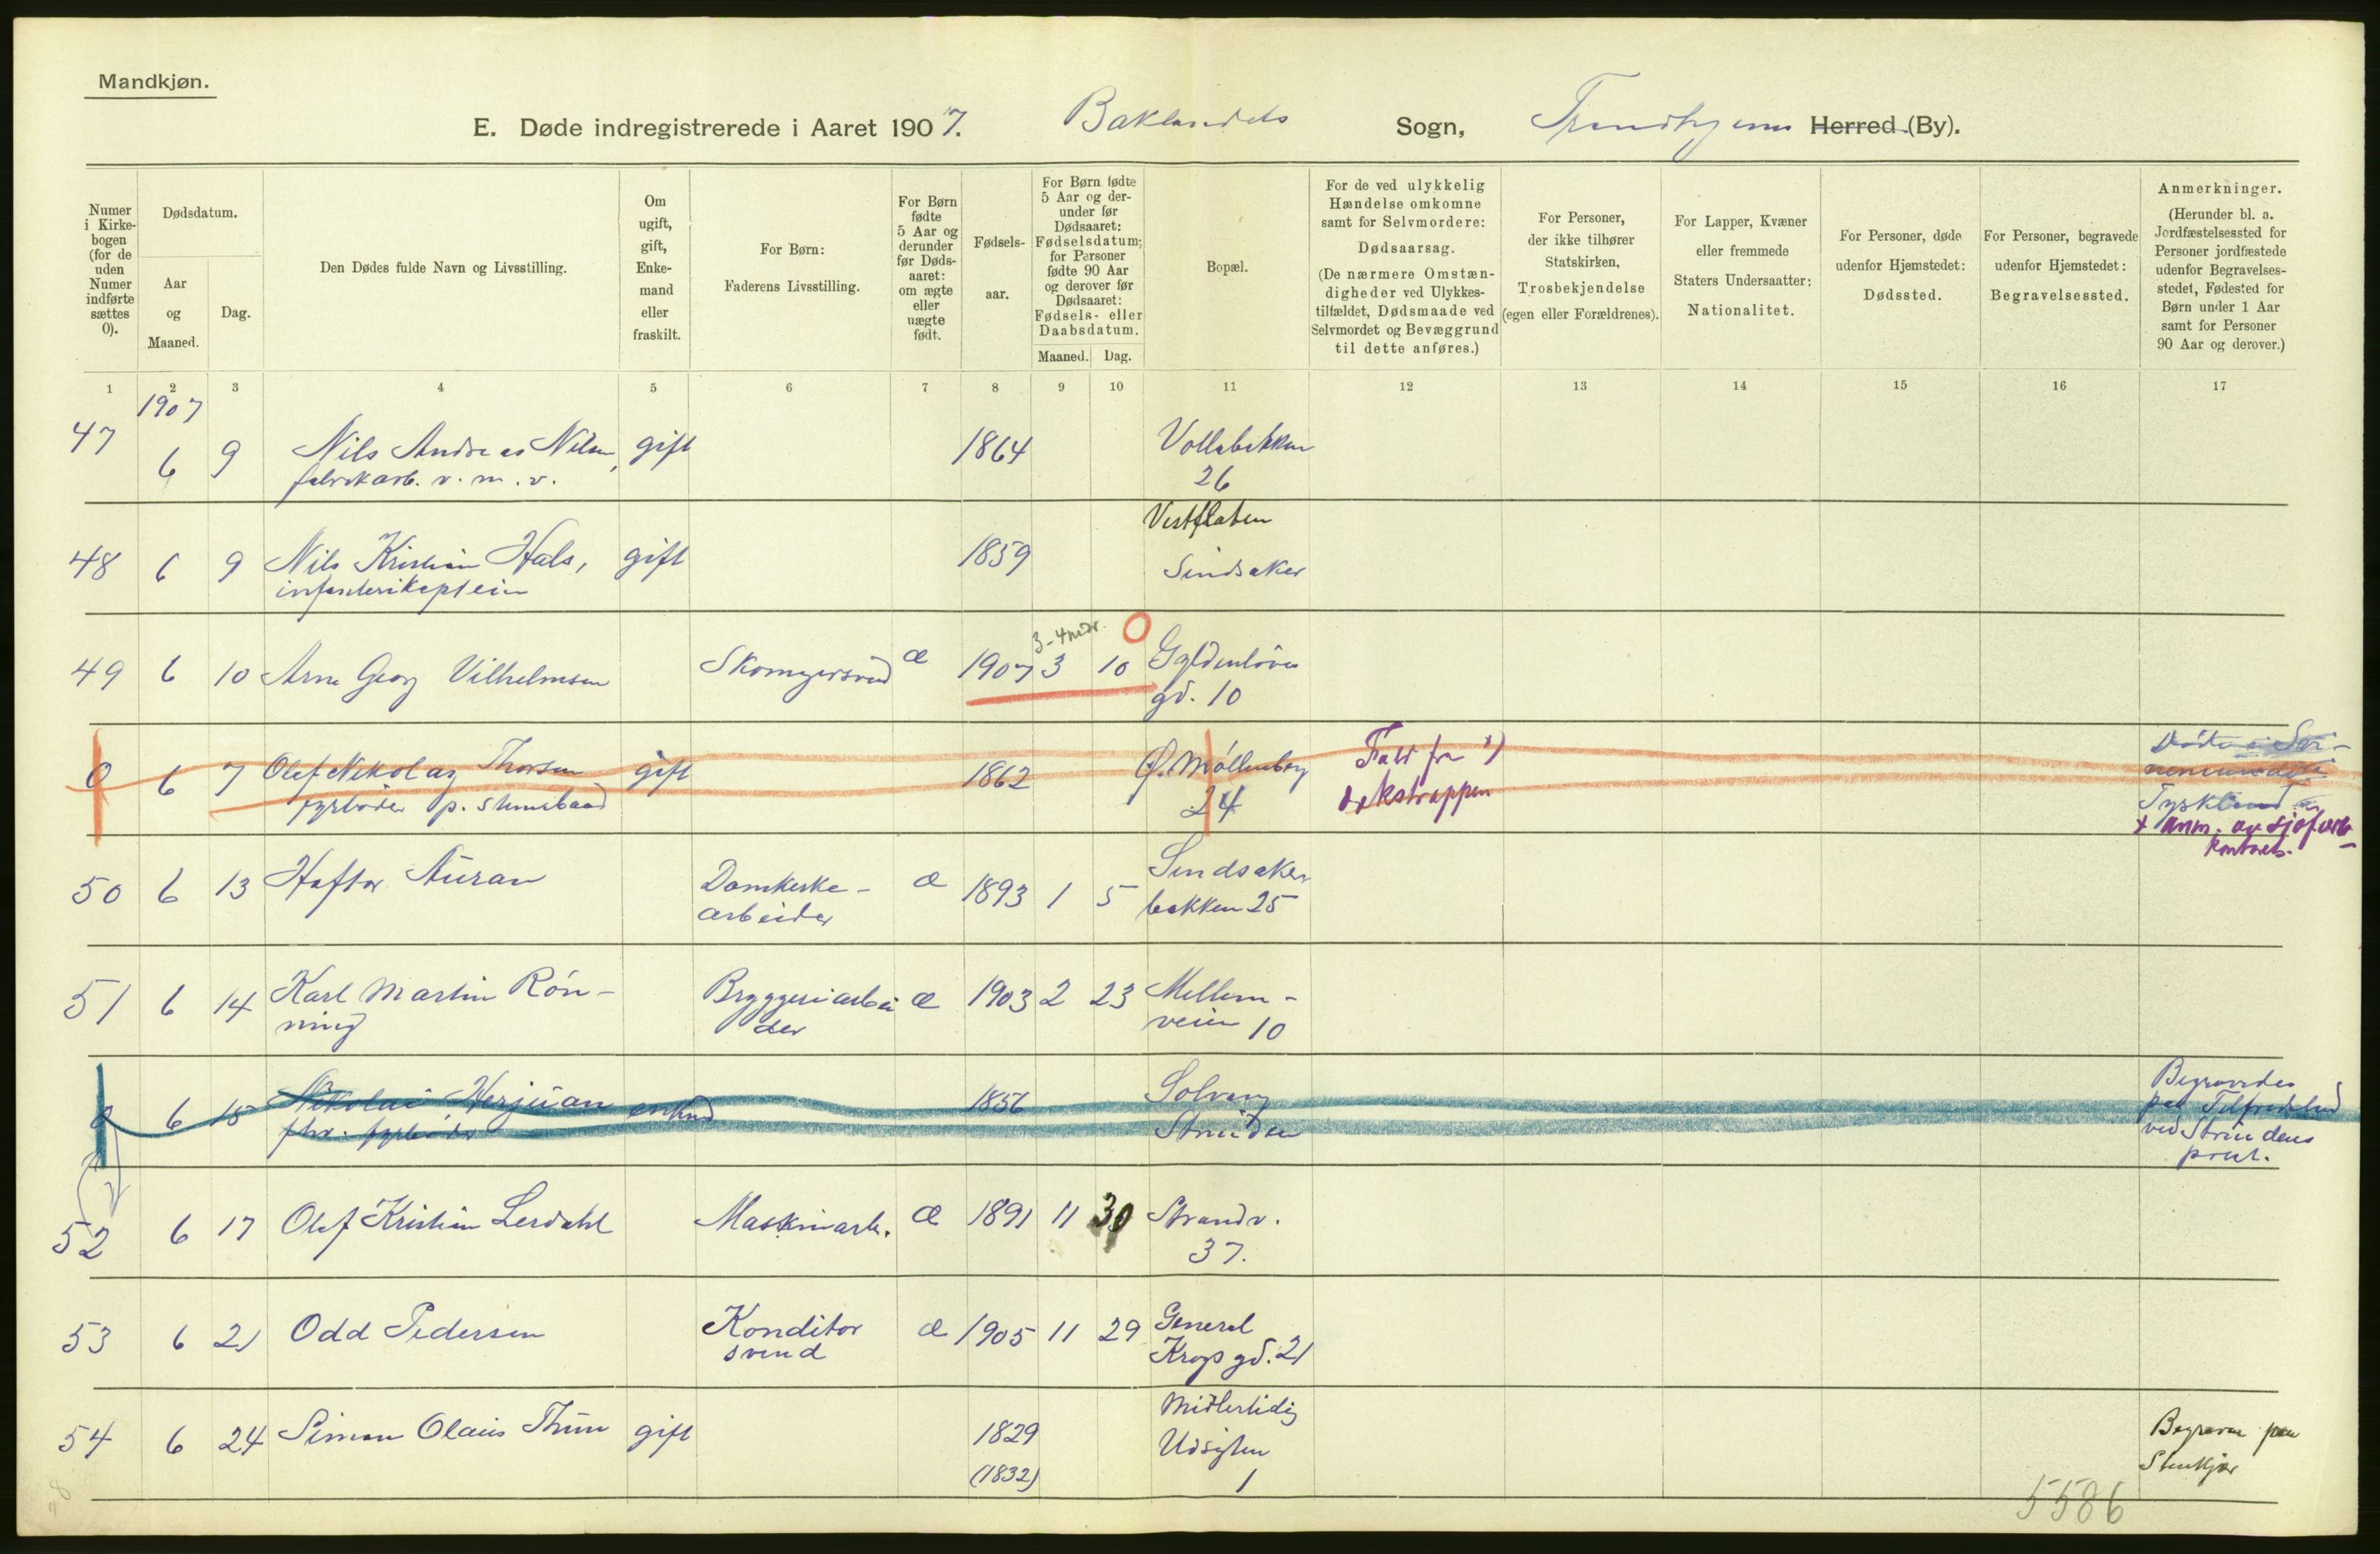 Mandkjøn.
E. Døde indregistrerede i Aaret 1907. Baklandets Sogn, Trondhjems Herred (By).
Numer i Kirkebogen (for de uden Numer indførte sættes 0).
Dødsdatum.
Aar og Maaned.
Dag.
Den Dødes fulde Navn og Livsstilling.
Om ugift, gift, Enkemand eller fraskilt.
For Børn: Faderens Livsstilling.
For Børn fødte 5 Aar og derunder før Dødsaaret: om ægte eller uægte født.
Fødselsaar.
For Børn fødte 5 Aar og derunder før Dødsaaret: Fødselsdatum; for Personer fødte 90 Aar og derover før Dødsaaret: Fødsels- eller Daabsdatum.
Maaned. Dag.
Bopæl.
For de ved ulykkelig Hændelse omkomne samt for Selvmordere: Dødsaarsag. (De nærmere Omstændigheder ved Ulykkestilfældet, Dødsmaade ved Selvmordet og Bevæggrund til dette anføres.)
For Personer, der ikke tilhører Statskirken, Trosbekjendelse (egen eller Forældrenes).
For Lapper, Kvæner eller fremmede Staters Undersaatter: Nationalitet.
For Personer, døde udenfor Hjemstedet: Dødssted.
For Personer, begravede udenfor Hjemstedet: Begravelsessted.
Anmerkninger. (Herunder bl. a. Jordfæstelsessted for Personer jordfæstede udenfor Begravelsesstedet, Fødested for Børn under 1 Aar samt for Personer 90 Aar og derover.)
1 2 3 4 5 6 7 8 9 10 11 12 13 14 15 16 17
1907
47 6 9 Nils Andreas Nilsen, gift 1864 Vollabakken
fabrikarb. v. m. v. 26
Vestflaten
48 6 9 Nils Kristian Hals, gift 1859 Sindsaker
infanterikaptein
3-4 mdr. 0
49 6 10 Arne Georg Vilhelmsen Skomagersvend æ 1907 3 10 Gyldenløves
gd. 10
0 6 7 Olef Nikolay Thorsen gift 1862 Ø. Møllenberg Fald fra x)
fyrbøder p. 24 dækstrappen
Tyskland
x anm. av
kontoret.
50 6 13 Haftor Auran Domkirke- æ 1893 1 5 Sindsaker
arbeider bakken 25
51 6 14 Karl Martin Røn- Bryggeriarbei æ 1903 2 23 Mellem-
ning der veien 10
0 6 15 Nikolai Herjuan enkmd 1856 Solvang
fhv. fyrbøder Strinden
Begravedes
paa Tilfredshed
ved Strindens
prest.
52 6 17 Olef Kristian Lerdahl Maskinarb. æ 1891 11 30 Strandv.
37.
53 6 21 Odd Pedersen Konditor æ 1905 11 29 General
svend Krogs gd. 21
54 6 24 Simon Olaus Thun gift 1829 Midlertidig
(1832) Udsigten
1
Begraven paa
Stenkjær
5586